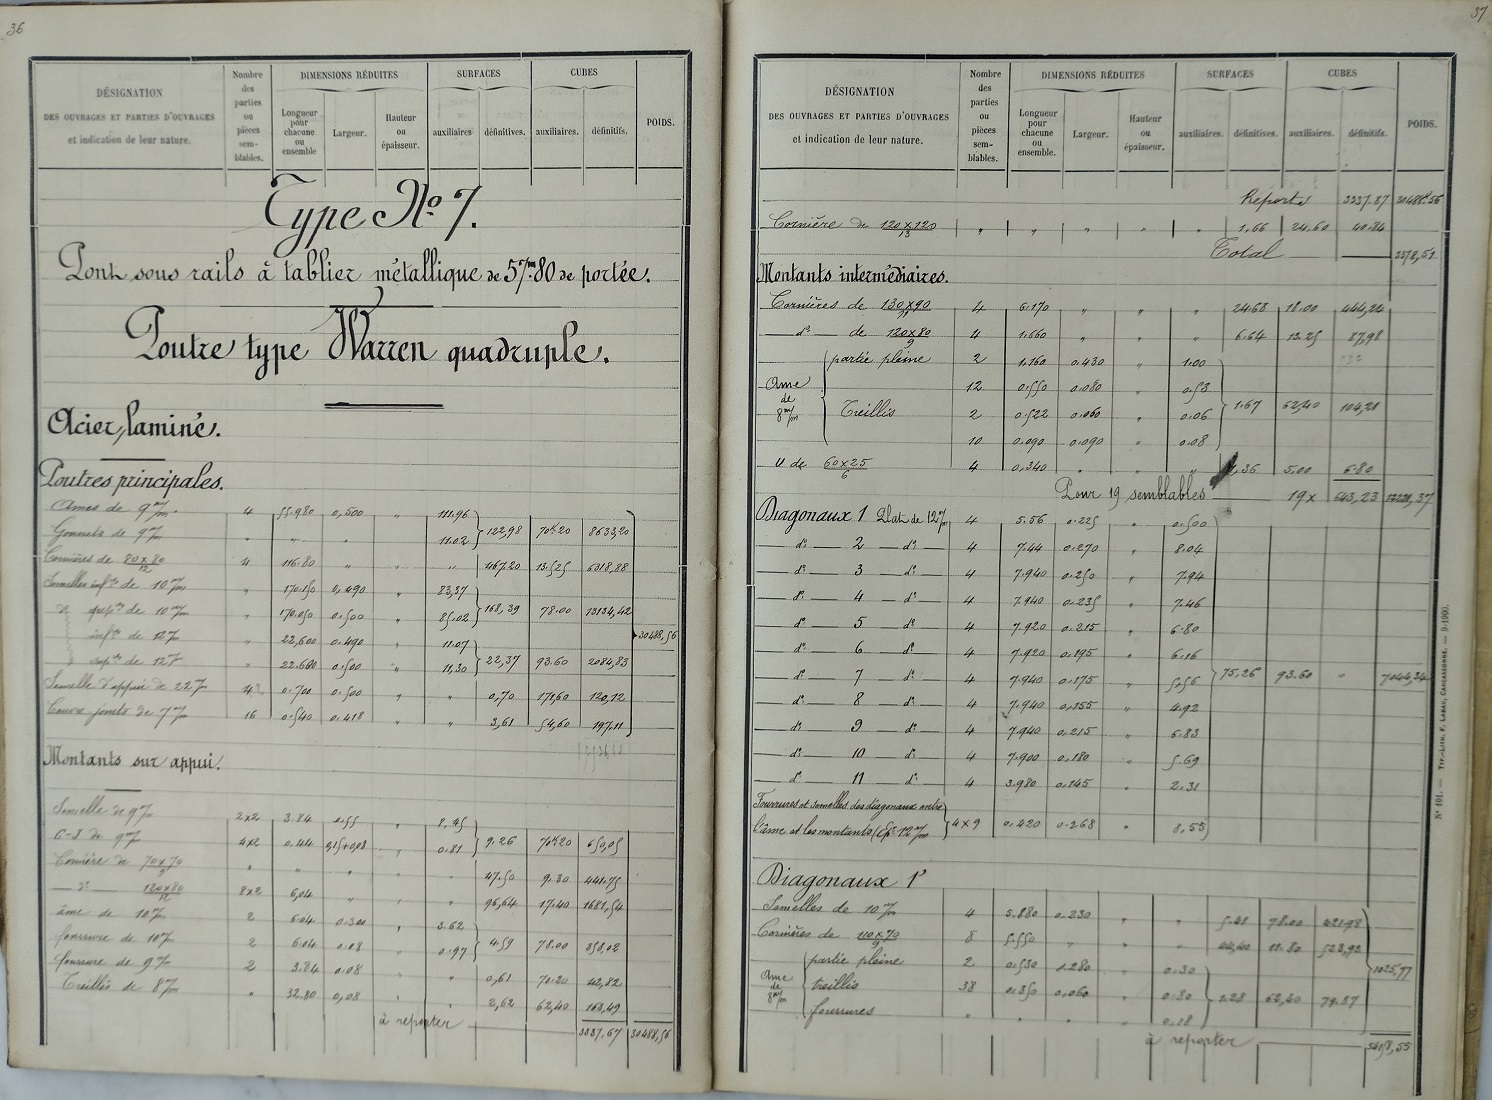 36
DÉSIGNATION
DES OUVRAGES ET PARTIES D'OUVRAGES
et indication de leur nature.
Nombre des parties ou pièces sem-blables.
DIMENSIONS RÉDUITES
Longueur pour chacune ou ensemble
Largeur.
Hauteur ou épaisseur.
SURFACES
auxiliaires
définitives.
CUBES
auxiliaires.
définitifs.
POIDS.
Type No 7.
Pont sous rails à tablier métallique de 57m.80 de portée.
Poutre type Warren quadruple.
Acier laminé.
Poutres principales.
Ames de 9m/m. 4 55.980 0,500 " 111.96
Goussets de 9m/m " " " 11.02 122,98 70k20 8633,20
Cornières de 80x80/12 4 116.80 " " " 467.20 13.525 6318,88
Semelles infres de 10m/m " 170.150 0,490 83,37
d° supres de 10m/m " 170.050 0.500 " 85.02 168,39 78.00 13134,42
infres de 12m/m " 22,600 0.490 11.07 30488,56
supres de 12m/m " 22.600 0.500 " 11,30 22,37 93.60 2084,83
Semelle d'appui de 22m/m 4 0.700 0.500 " " 0,70 171,60 120,12
Couvre joints de 7m/m 16 0.540 0.418 " " 3,61 54,60 197.11
Montants sur appui.
Semelle de 9m/m 2x2 3.84 0.55 " 8.45
C-J de 9m/m 4x2 0.44 " 0.81 9.26 70k20 650,05
Cornière de 70x70/9 " " " " 47.50 9.30 441.75
d° 120x80/12 8x2 6,04 " " " 96,64 17.40 1681,54
âme de 10m/m 2 6.04 0.300 3.62
fourrure de 10m/m 2 6.04 0.08 " 0.97 4.59 78.00 358,02
fourrure de 9m/m 2 3.84 0.08 " " 0,61 70.20 42,82
Treillis de 8m/m " 32.80 0,08 " " 2,62 62,40 163,49
à reporter 3337.67 30488,56
37
DÉSIGNATION
DES OUVRAGES ET PARTIES D'OUVRAGES
et indication de leur nature.
Nombre des parties ou pièces sem-blables.
DIMENSIONS RÉDUITES
Longueur pour chacune ou ensemble.
Largeur.
Hauteur ou épaisseur.
SURFACES
auxiliaires.
définitives.
CUBES
auxiliaires.
définitifs.
POIDS.
Reports 3337.87 30488k.56
Cornière de 120x120/13 " " " " " 1.66 24.60 40.84
Total 3378,51
Montants intermédiaires.
Cornières de 130x90/11 4 6.170 " " " 24.68 18.00 444,24
d° de 120x80/9 4 1.660 " " " 6.64 13.25 87,98
Ame de 8m/m
partie pleine 2 1,160 0.430 " 1.00
12 0.550 0.080 0.53
Treillis 2 0.522 0.060 " 0.06 1.67 62,40 104,21
10 0.090 0.090 " 0.08
U de 60x25/6 4 0.340 " " " 1,36 5.00 6.80
Pour 19 semblables 19 x 643,23 12221,37
Diagonaux 1 Plat de 12m/m 4 5.56 0.225 " 0.500
d° 2 d° 4 7.44 0.270 " 8.04
d° 3 d° 4 7.940 0.250 " 7.94
d° 4 d° 4 7.940 0.235 " 7.46
d° 5 d° 4 7.920 0.215 " 6.80
d° 6 d° 4 7.920 0.195 " 6.16
d° 7 d° 4 7.940 0.175 " 5.56 75,26 93.60 " 7044,34
d° 8 d° 4 7.940 0.155 " 4.92
d° 9 d° 4 7.940 0.215 " 6.83
d° 10 d° 4 7.900 0.180 " 5.69
d° 11 d° 4 3.980 0.145 " 2.31
Fourrures et semelles des diagonaux entre
l'âme et les montants (Ép: 12m/m) 4 x 9 0.420 0.268 " 8,55
Diagonaux 1'
Semelles de 10m/m 4 5.880 0.230 " " 5.41 78.00 421.98
Cornières de 110x70/9 8 5.550 " " " 44,40 11.80 523,92
Ame de 8m/m
partie pleine 2 0.530 0.280 " 0.30 1025,77
treillis 38 0.350 0.060 " 0.80 1.28 62,40 79.87
fourrures " " " " 0.18
à reporter
N° 491. — Typ.-Lith. F. Labau, Carcassonne. — 9-1900.